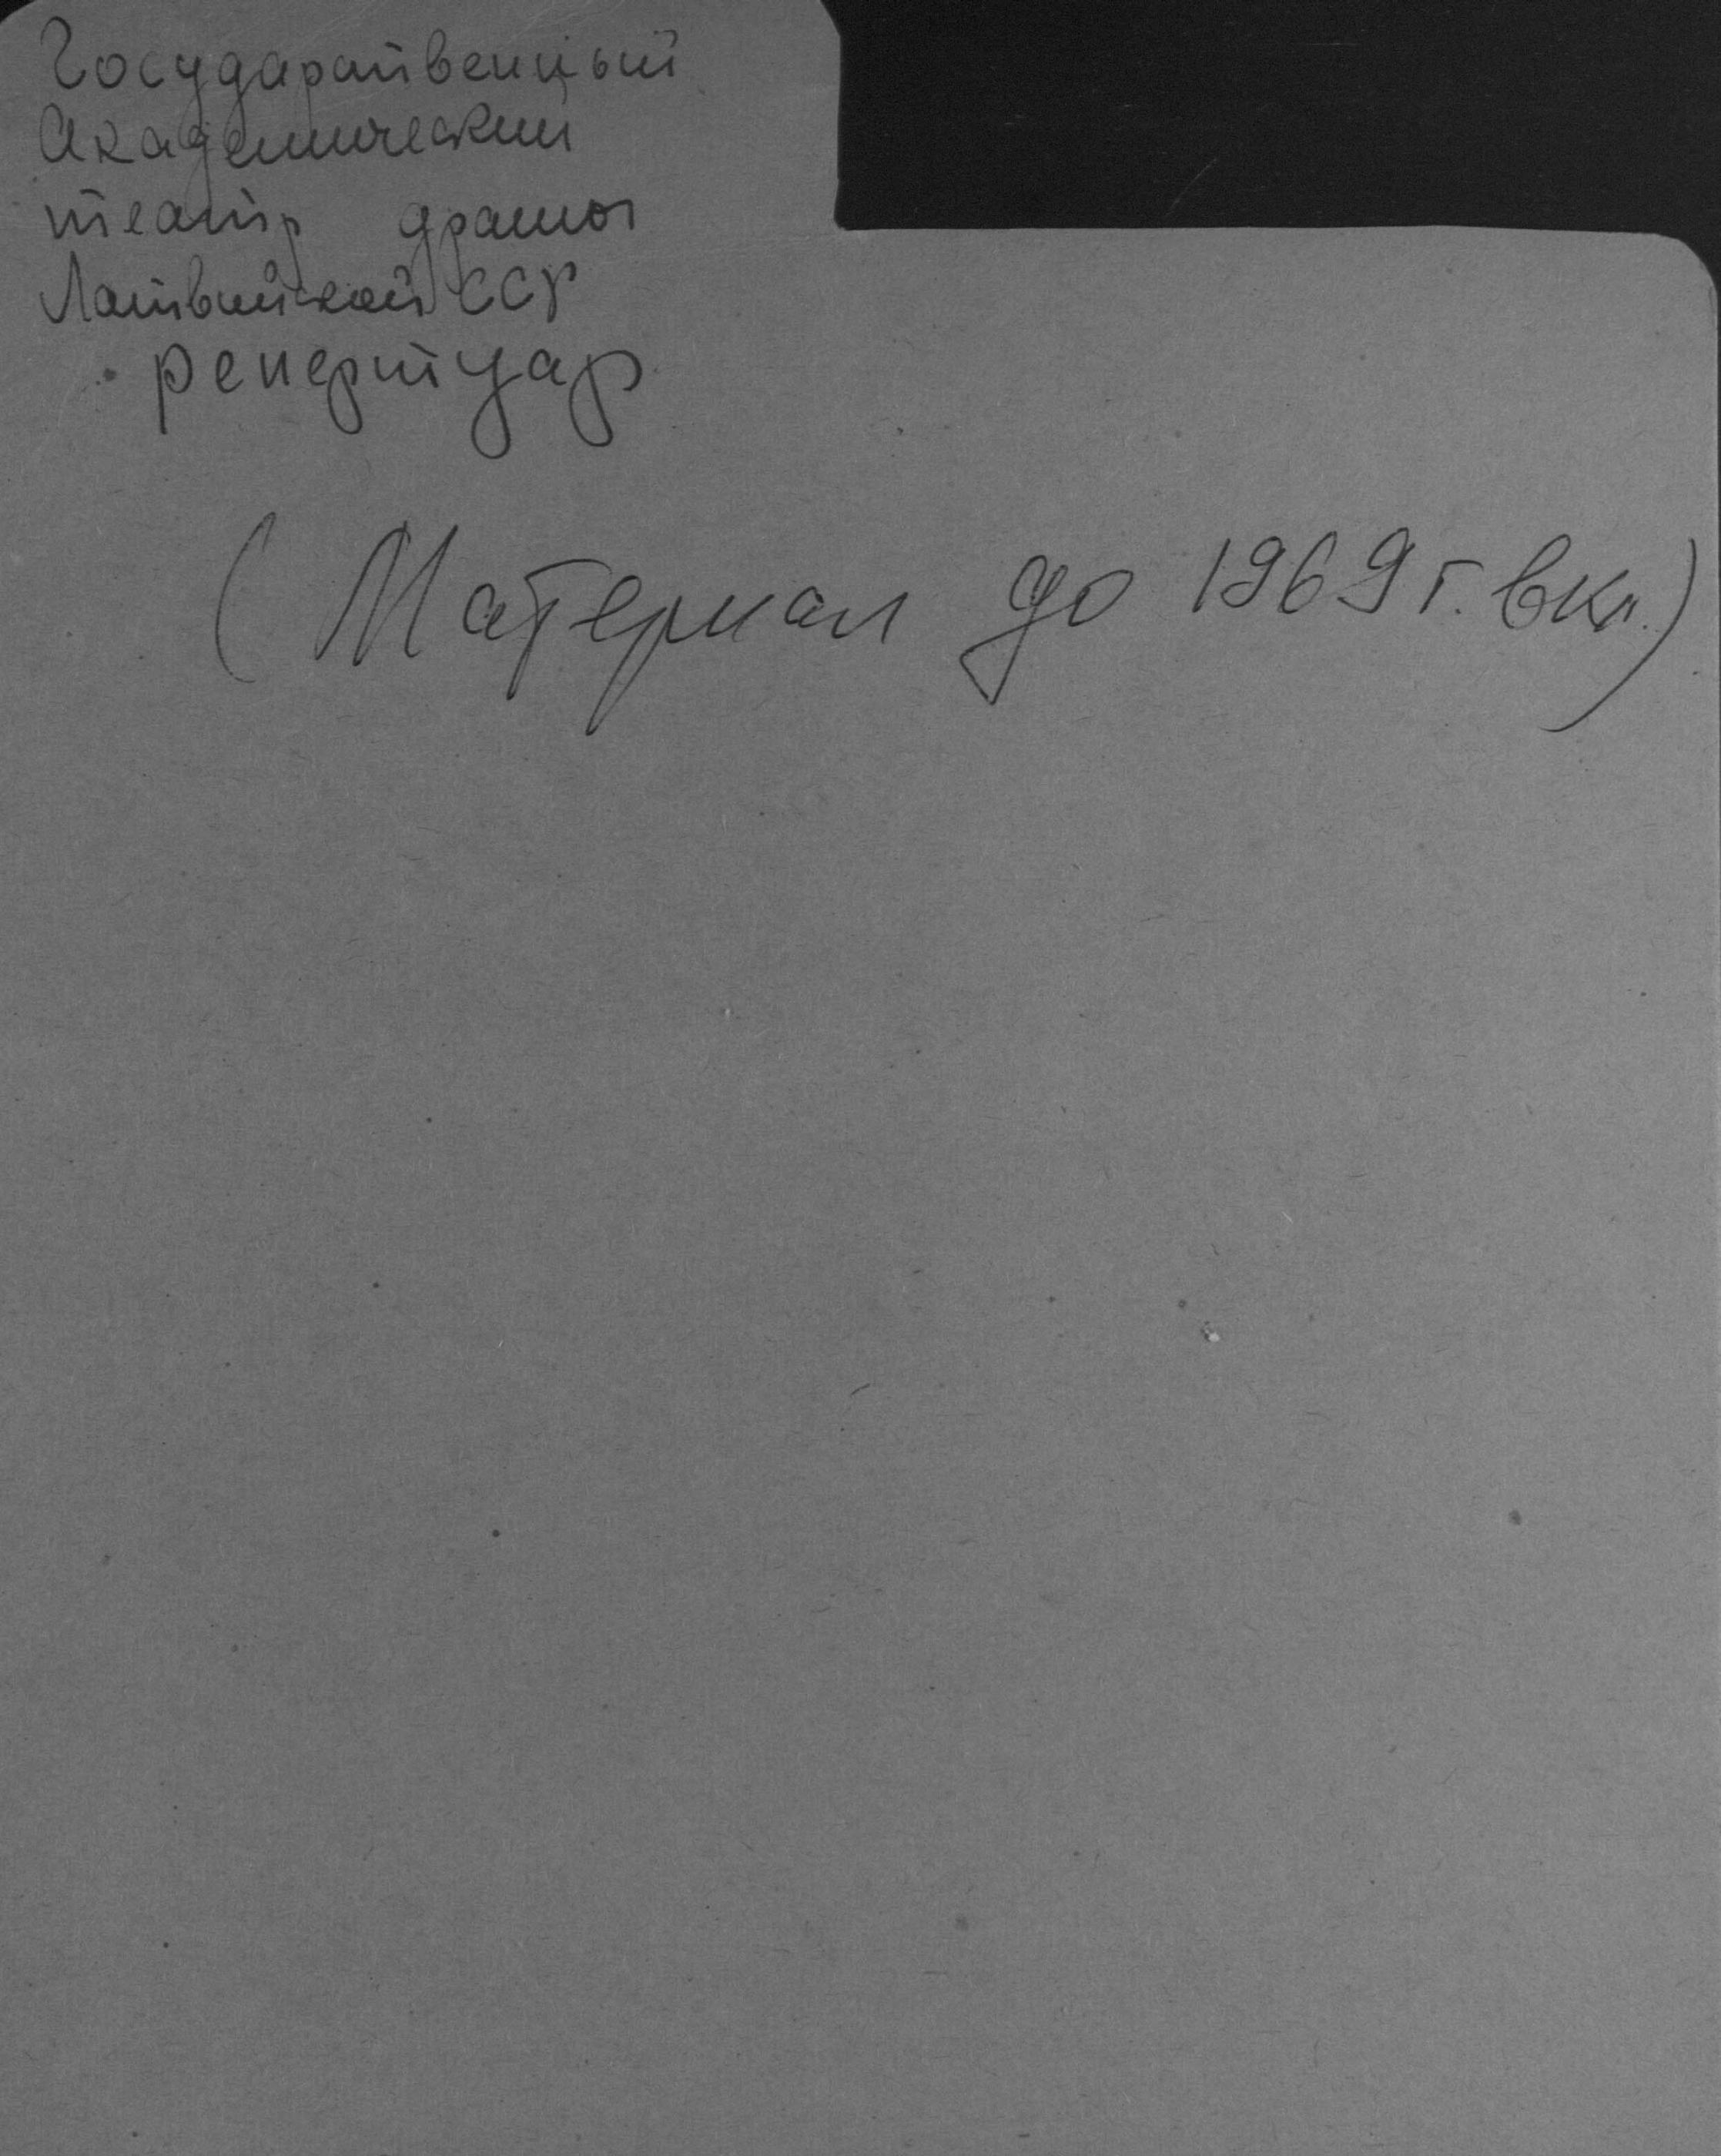 Государственный
Академический
театр драмы
Латвийской ССР
репертуар
(Материал до 1969 г. вкл.)